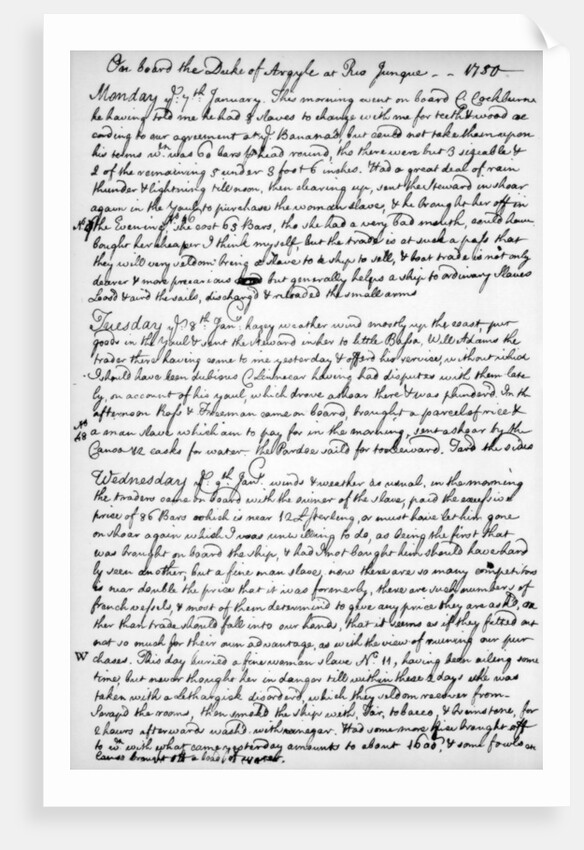 On board the Duke of Argyle at Rio Junque - - 1750
Monday ye. 7th January. This morning went on board C. Cockburne
he having told me he had 8 slaves to change with me for teeth & wood ac
cording to our agreement at ye. Bananas, but could not take them upon
his terms wh. was 60 bars pr head round, tho there were but 3 sizeable &
2 of the remaining 5 under 3 foot 6 inches. Had a great deal of rain
thunder & lightning till noon, then clearing up, sent the Steward in shoar
again in the Yaul to purchase the woman slave, & he brought her off in
the Evening, No. 46 she cost 63 Bars, tho she had a very bad mouth, could have
bought her cheaper I think myself, but the trade is at such a pass that
they will very seldom bring a slave to a ship to sell, & boat trade is not only
dearer & more precarious but generally helps a ship to ordinary slaves
Load & air'd the sails, discharg'd & reloaded the small arms
Tuesday ye. 8th Jany. hazey weather wind mostly up the coast, put
goods in the Yaul & sent the Steward in her to little Bassa, Will Adams the
trader there having come to me yesterday & offerd his service, without which
I should have been dubious C. having had disputes with them late
ly, on account of his yaul, which drove ashoar there & was plunderd. In the
afternoon Ross & Freeman came on board, brought a parcel of rice &
No
48
a man slave which am to pay for in the morning, sent ashoar by the
Canoa 12 casks for water. The Pardoe saild for to leeward. Tard the sides
Wednesday ye. 9th Jany. winds & weather as usual, in the morning
the traders came on board with the owner of the slave, paid the excessive
price of 86 Bars which is near 12£ sterling, or must have let him gone
on shoar again which I was unwilling to do, as being the first that
was brought on board the ship, & had I not bought him should have hard
ly seen another, but a fine man slave, now there are so many competitors
is near double the price that it was formerly, there are such numbers of
french vessels, & most of them determind to give any price they are askd, ra
ther than trade should fall into our hands, that it seems as if they fitted out
not so much for their own advantage, as with the view of ruining our pur
W
chases. This day buried a fine woman slave No. 11, having been ailing some
time, but never thought her in danger till within these 2 days she was
taken with a Lethargick disorder, which they seldom recover from.
Scrap'd the rooms, then smoakd the ship with Tar, tobacco, & brimstone, for
2 hours afterwards washd with vinegar. Had some more rice brought off
to wh. with what came yesterday amounts to about 1600, & some fowls
Canoe brought off a load of water.